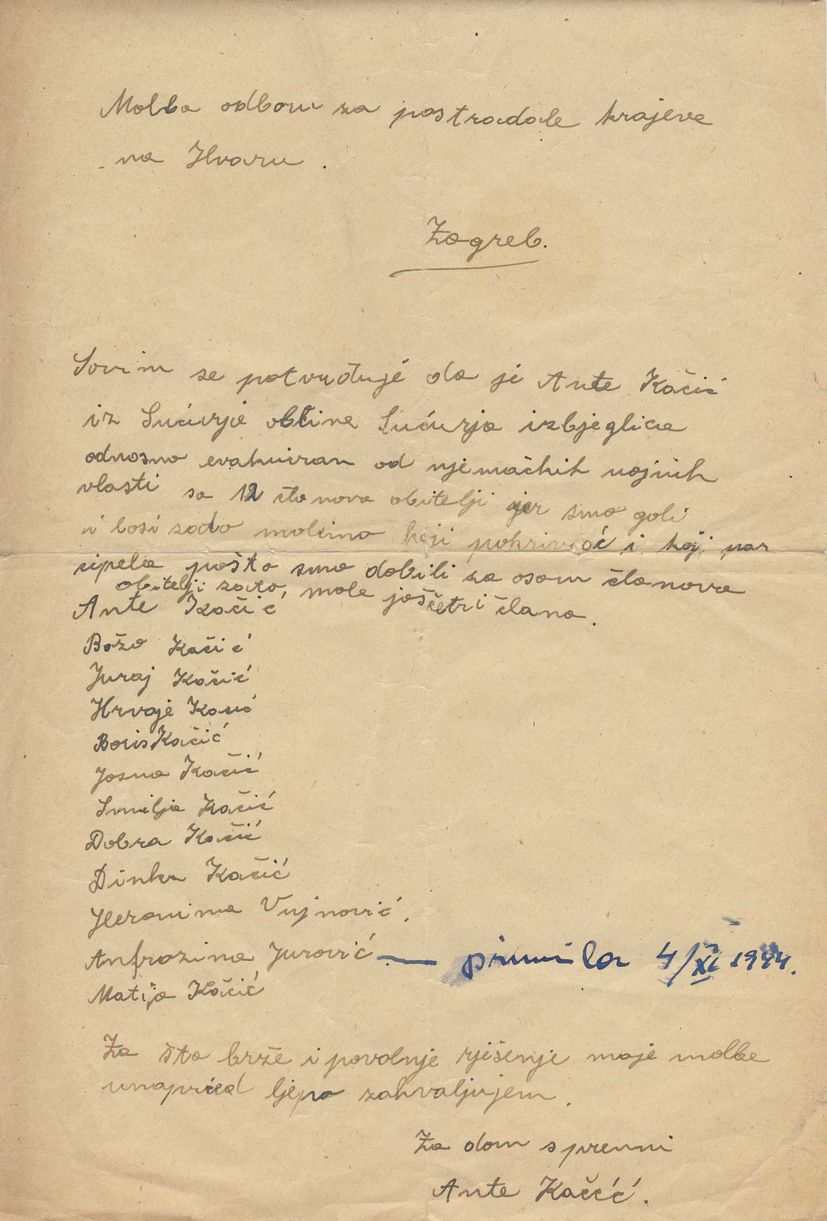 Molba odboru za postradale krajeve
na Hvaru.
Zagreb.
Sovim se potvrđuje da je Ante Kačić
iz Sućurja obćine Sućurja izbjeglica
odnosno evakuiran od njemačkih vojnih
vlasti sa 12 članova obitelji jer smo goli
i bosi zato molimo koji pokrivać i koji par
cipela pošto smo dobili za osam članova
obitelji zato, mole još četri člana.
Ante Kačić
Božo Kačić
Juraj Kačić
Hrvoje Kačić
Boris Kačić
Josna Kačić
Smilja Kačić
Dobra Kačić
Dinka Kačić
Jeronima Vujnović.
Anfrozina Jurović — primila 4/XI 1944.
Matija Kačić
Za što brže i povoljnje rješenje moje molbe
unapried ljepo zahvaljujem.
Za dom spremni
Ante Kačić.